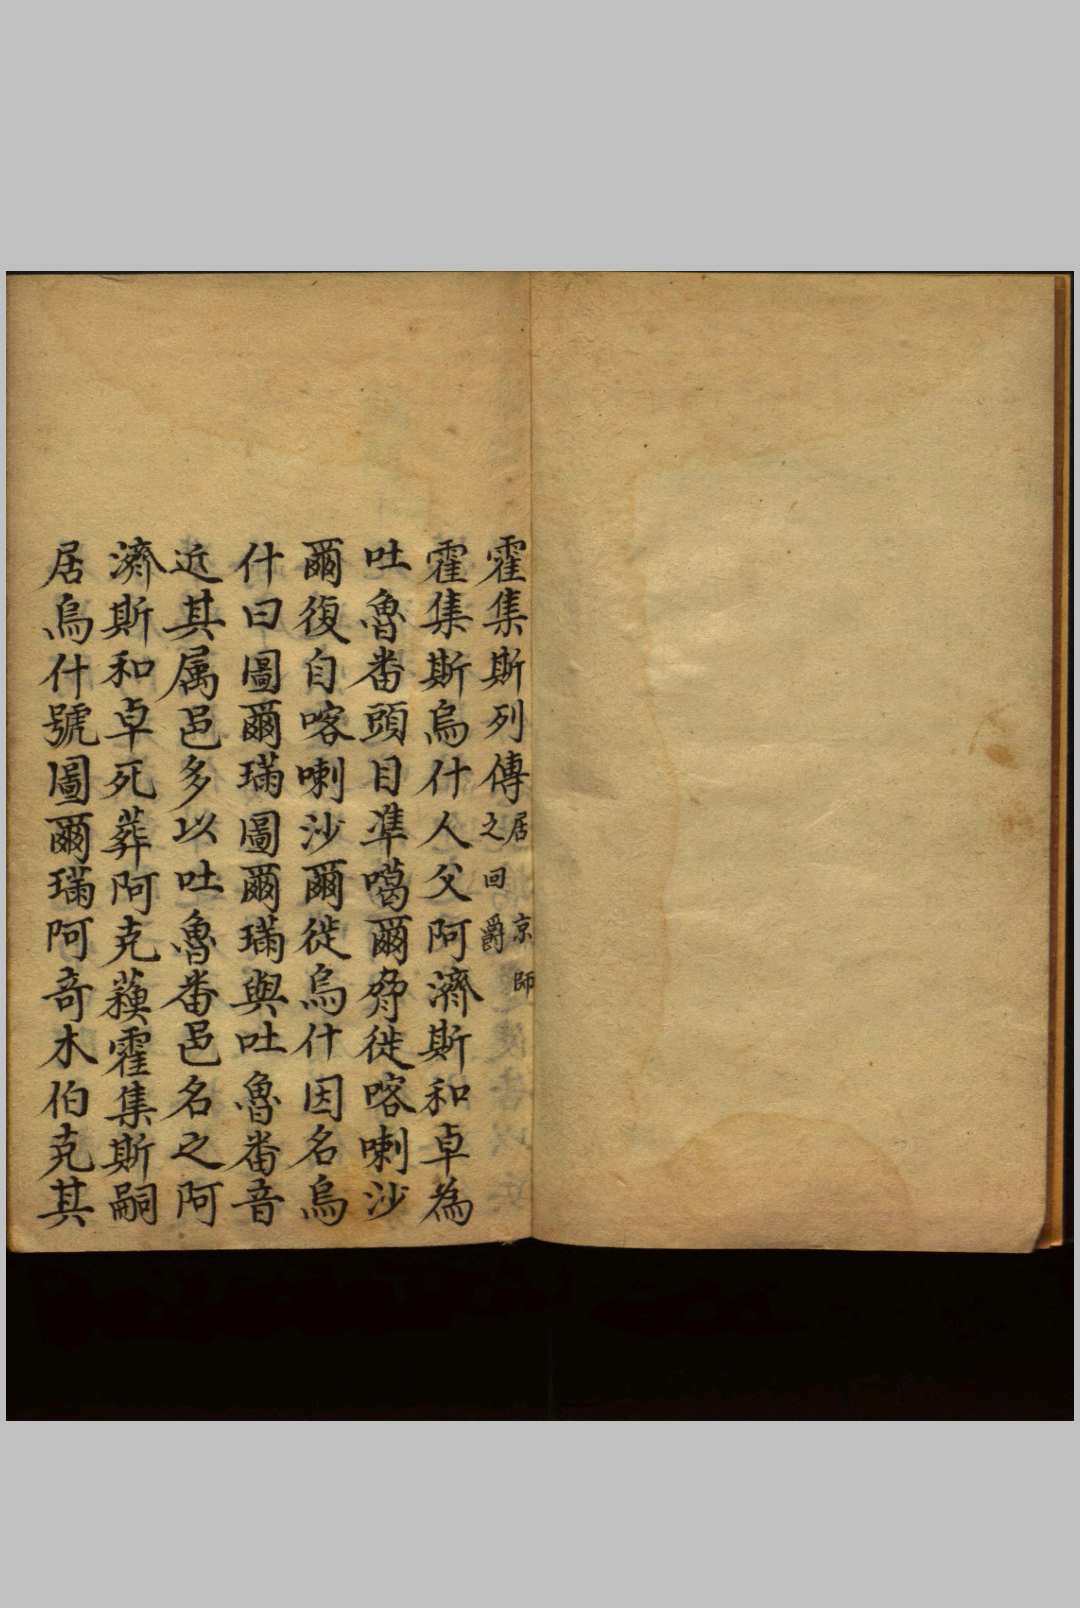 霍集斯列傳居京師之回爵
霍集斯烏什人父阿濟斯和卓為
吐魯番頭目準噶爾脅徙喀喇沙
爾復自喀喇沙爾徙烏什因名烏
什曰圖爾璊圖爾璊與吐魯番音
近其属邑多以吐魯番邑名之阿
濟斯和卓死葬阿克蘓霍集斯嗣
居烏什號圖爾璊阿竒木伯克其